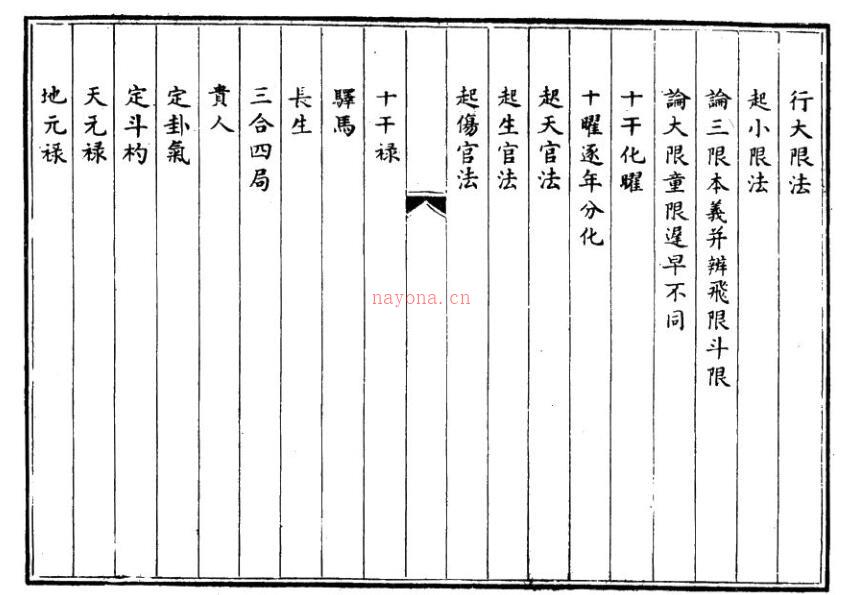 行大限法
起小限法
論三限本義并辨飛限斗限
論大限童限遲早不同
十干化曜
十曜逐年分化
起天官法
起生官法
起傷官法
十干禄
驛馬
長生
三合四局
貴人
定卦氣
定斗杓
天元禄
地元禄
nayona.cn